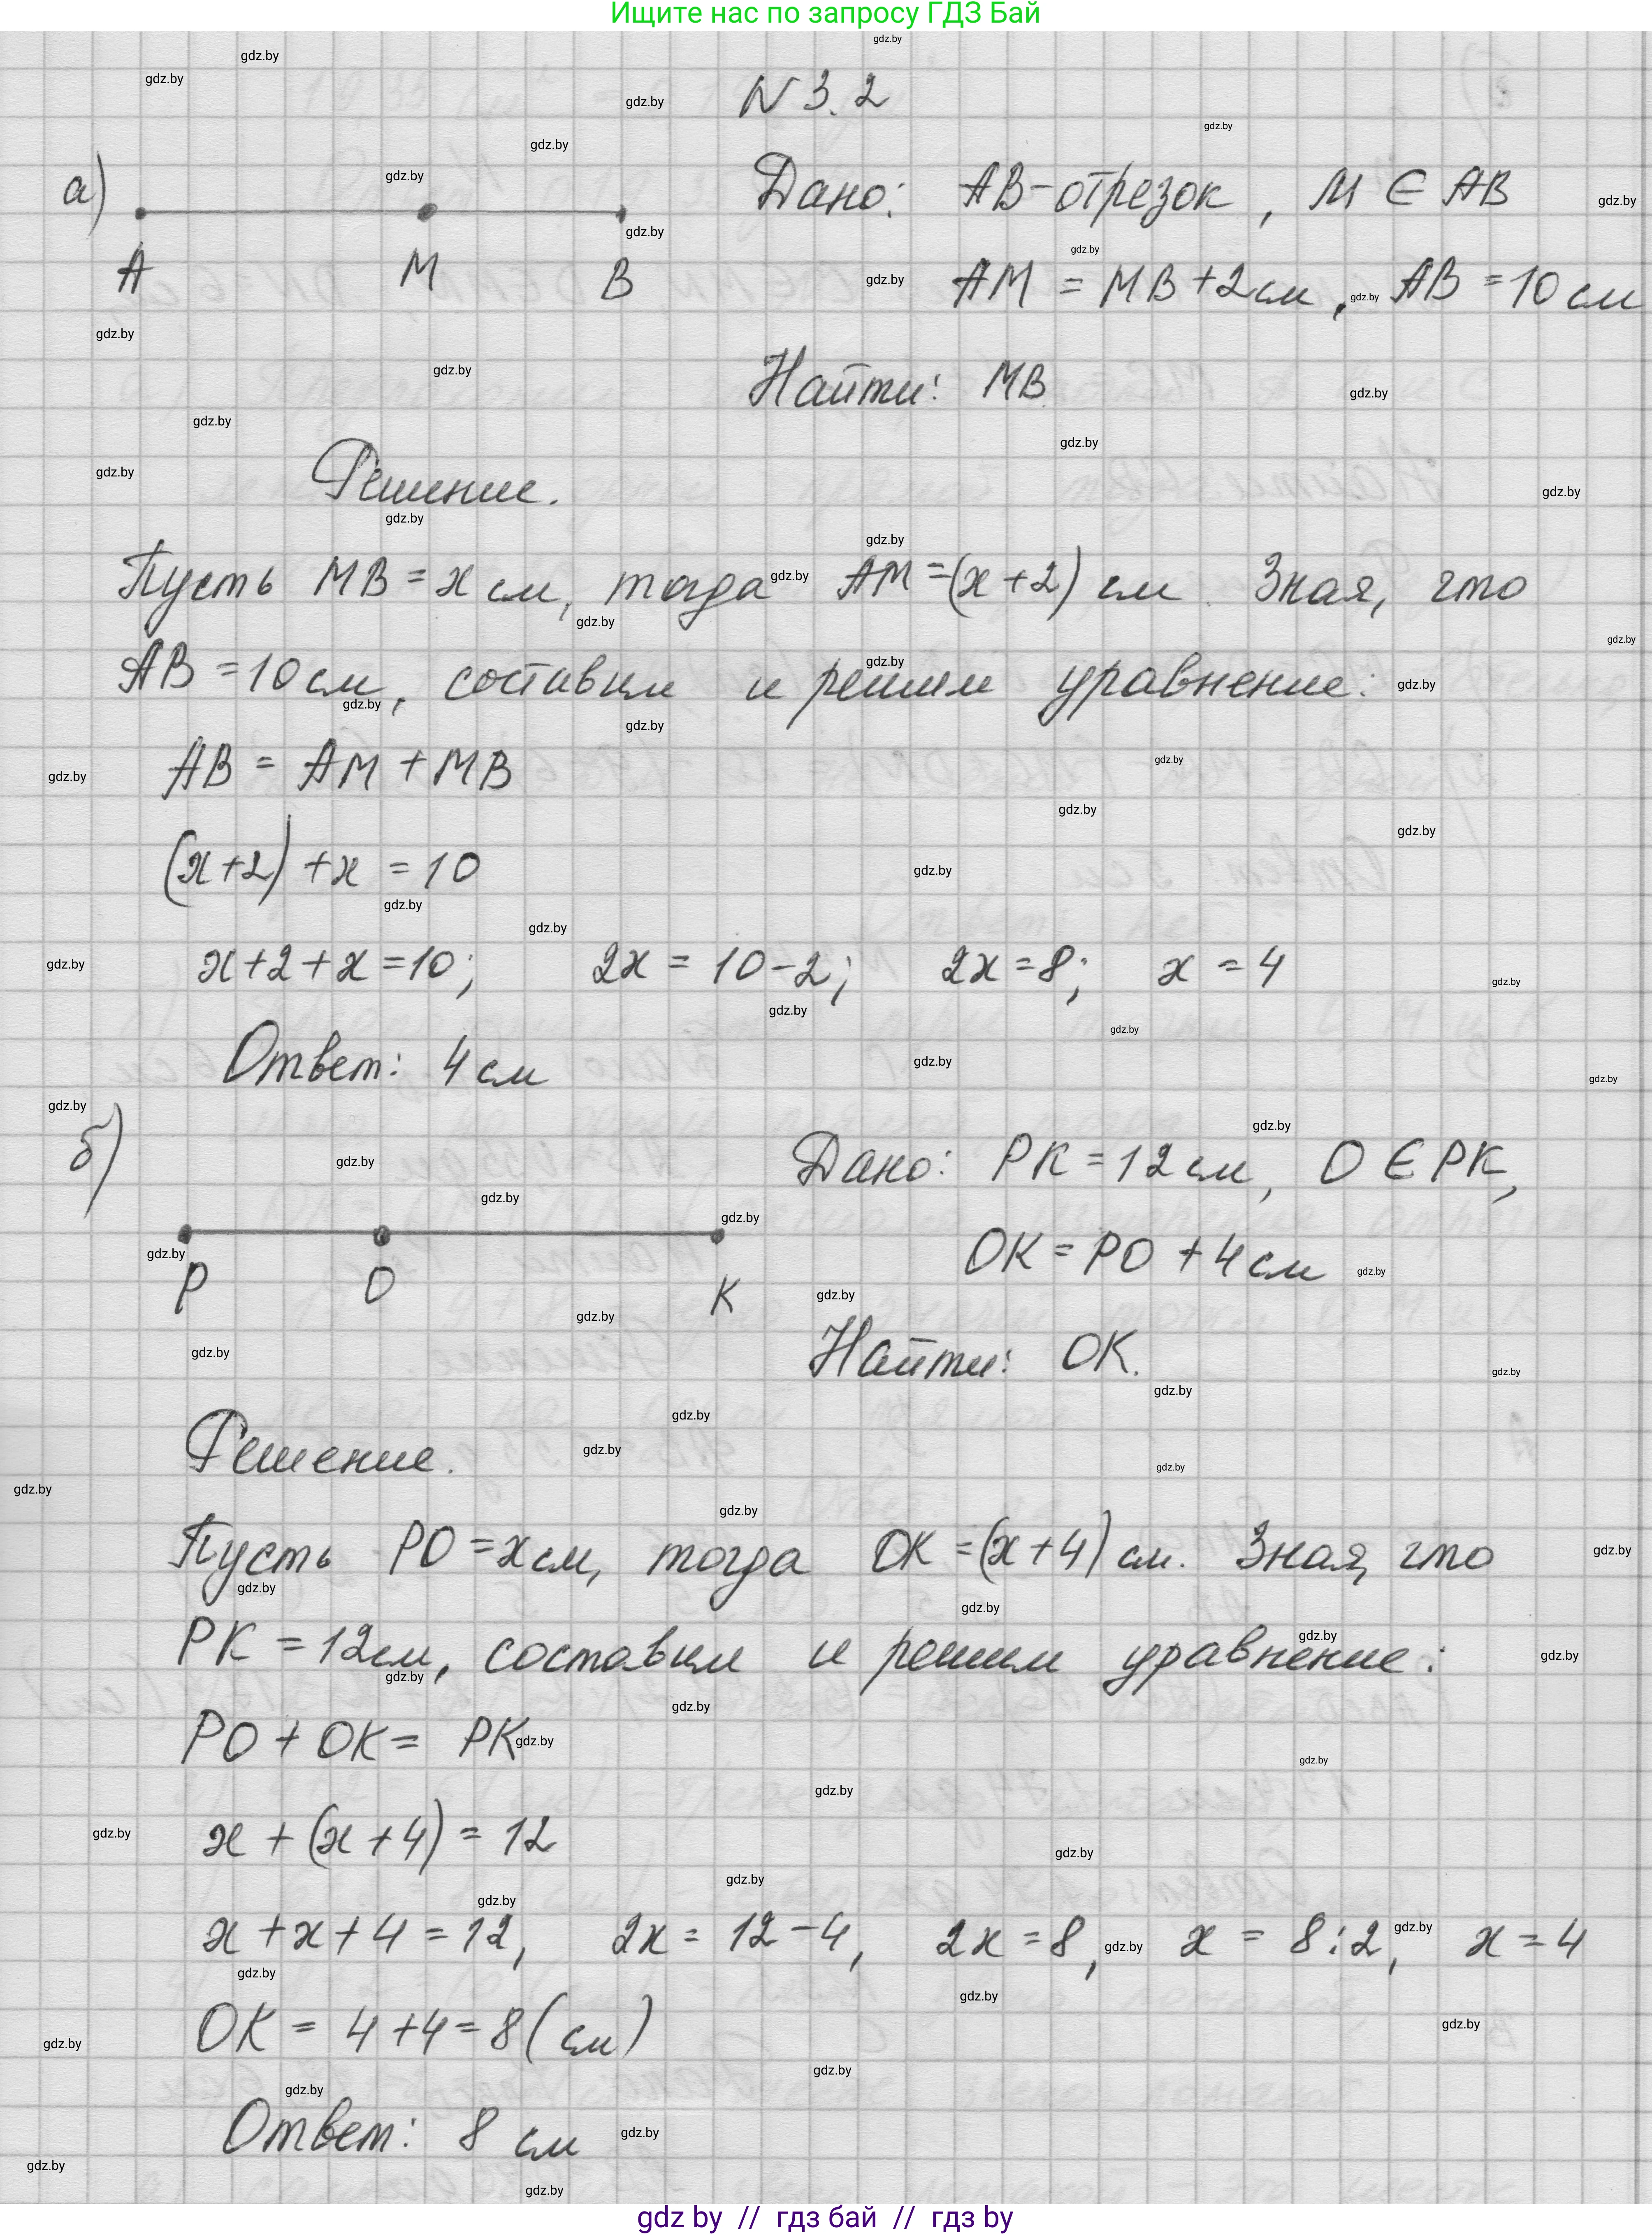 Ищите нас по запросу ГДЗ Бай
N 3.2
а)
Дано: AB-отрезок, M ∈ AB
A M B
AM = MB+2см, AB = 10 см
Найти: MB
Решение.
Пусть MB = x см, тогда AM = (x+2) см. Зная, что
AB = 10 см, составим и решим уравнение:
AB = AM + MB
(x+2) + x = 10
x+2+x=10; 2x = 10-2; 2x=8; x = 4
Ответ: 4 см
б)
Дано: PK = 12 см, O ∈ PK,
P O K
OK = PO + 4 см
Найти: OK.
Решение.
Пусть PO = x см, тогда OK = (x+4) см. Зная, что
PK = 12 см, составим и решим уравнение:
PO + OK = PK
x + (x + 4) = 12
x + x + 4 = 12, 2x = 12 - 4, 2x = 8, x = 8:2, x = 4
OK = 4+4=8(см)
Ответ: 8 см
gdz by // гдз бай // гдз by